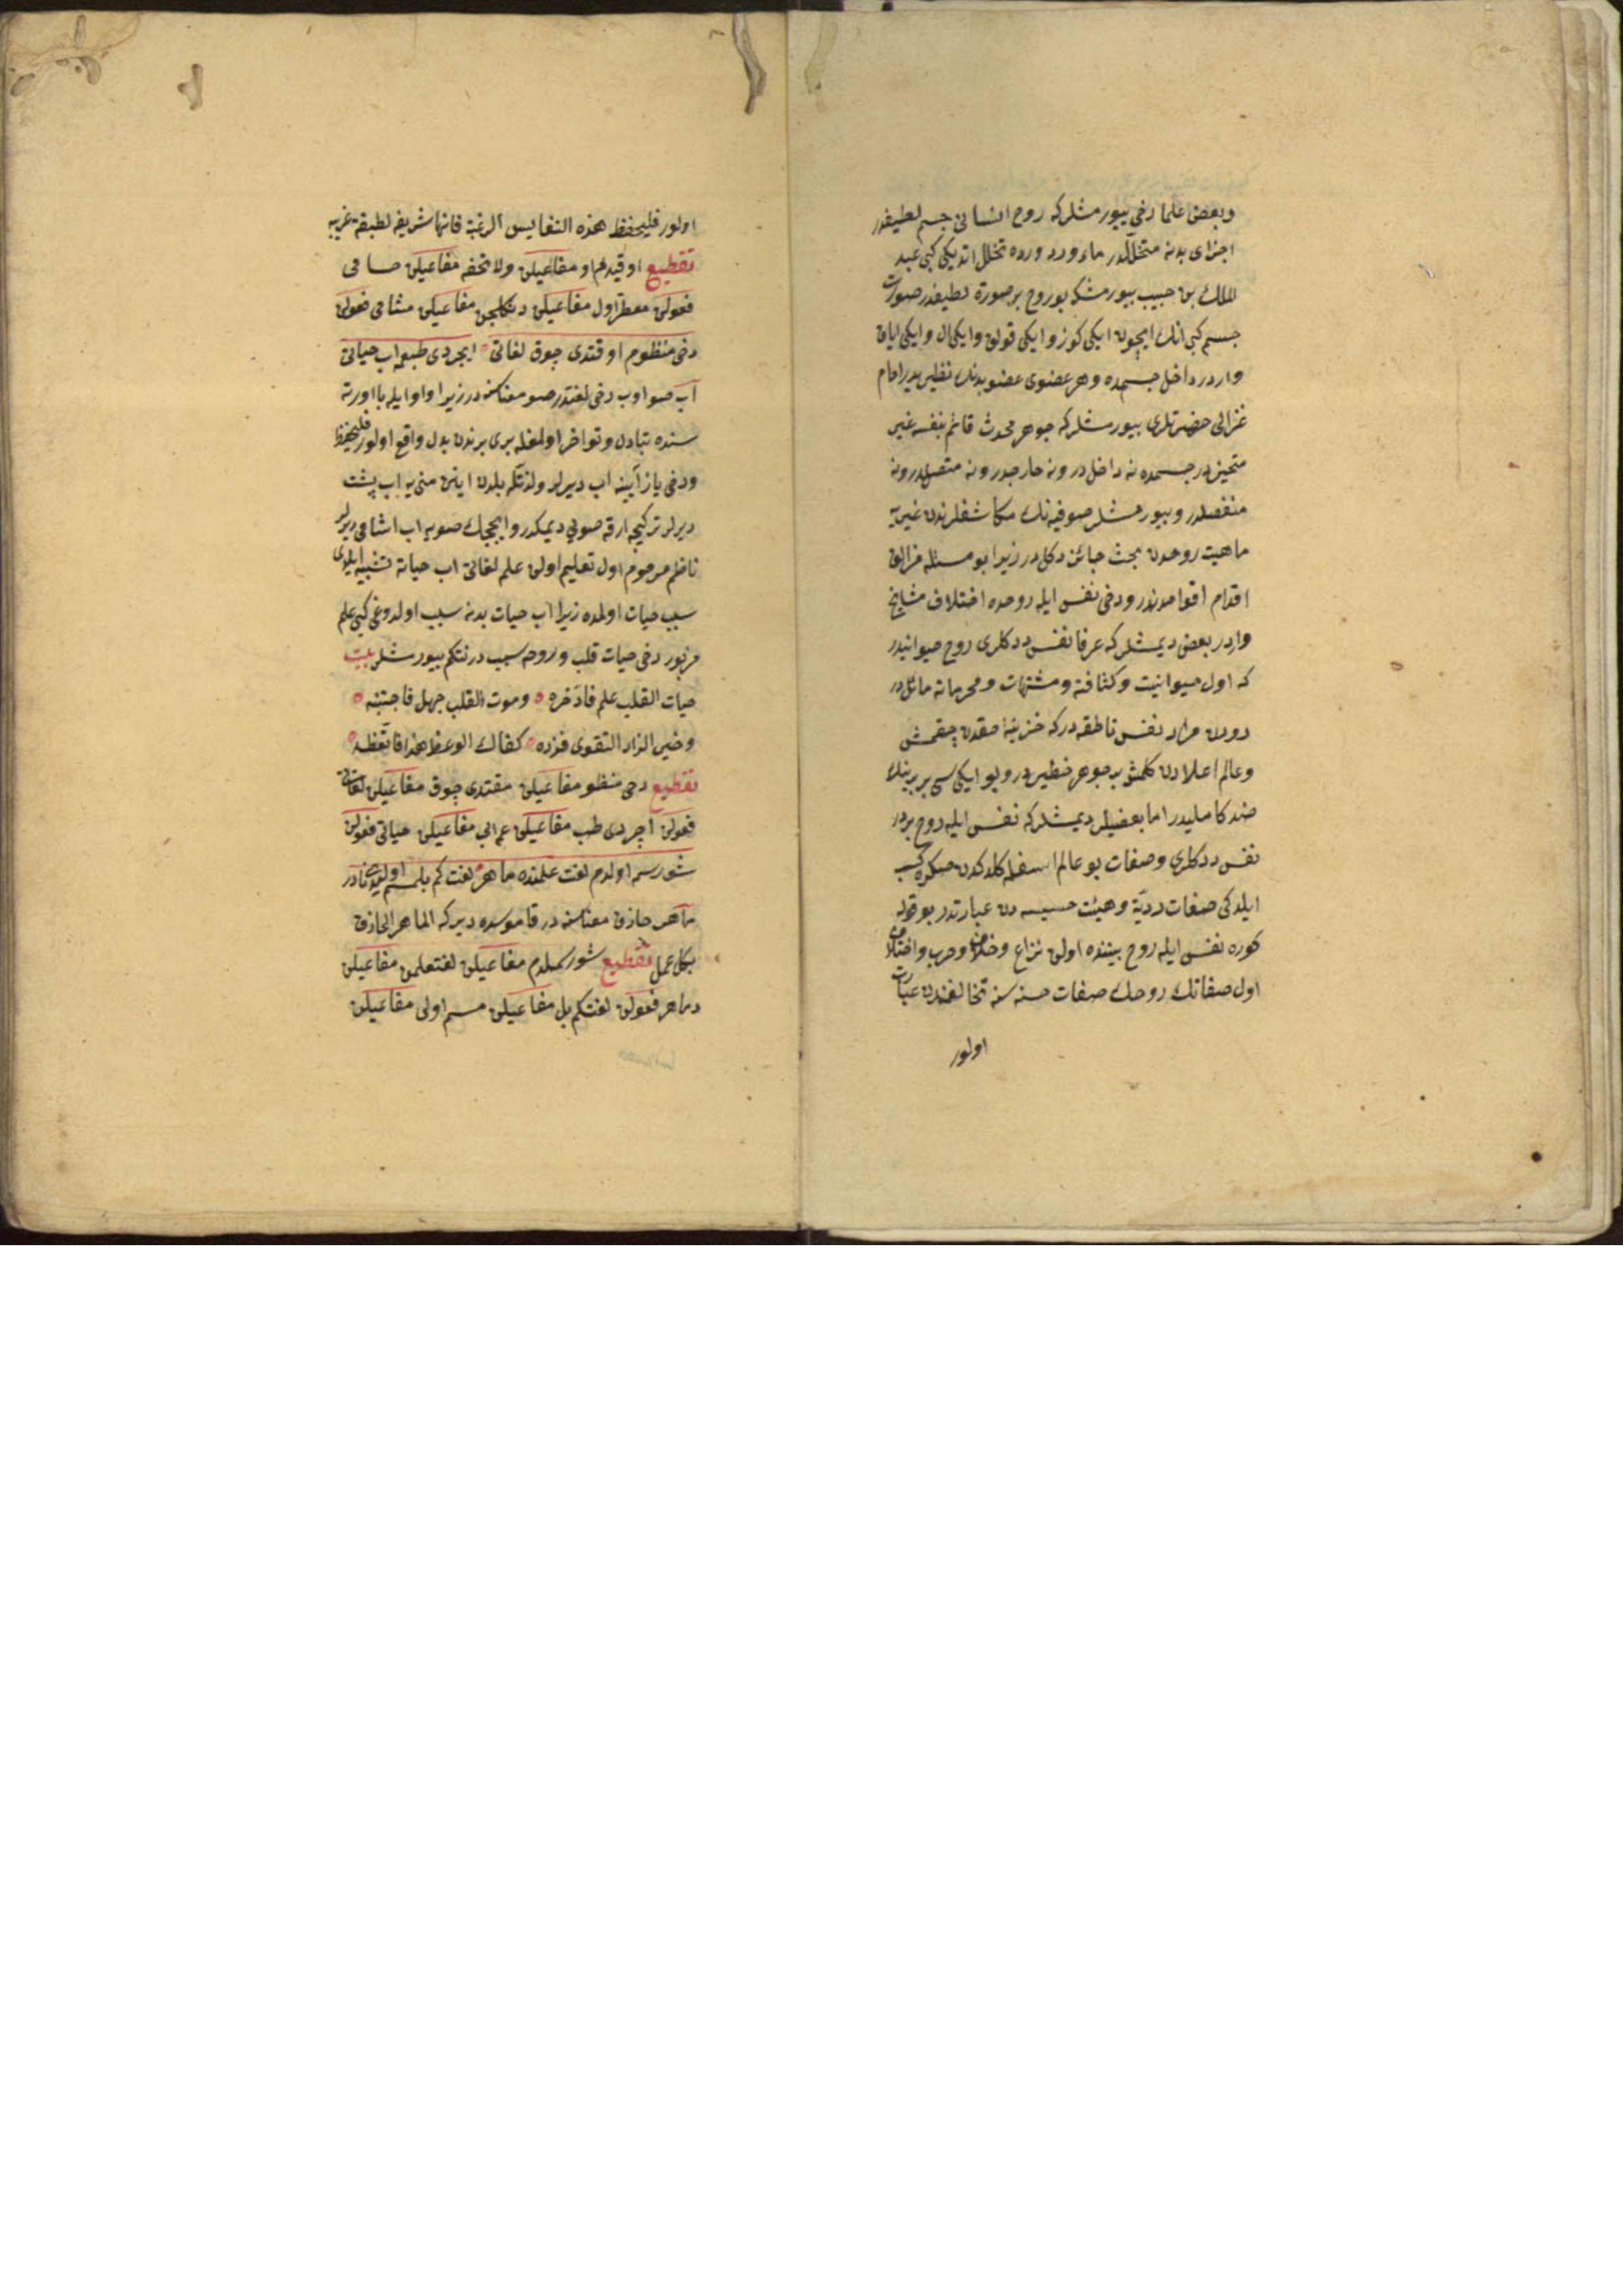 وبعض علما دخى بيورمشلركه روح انسانى جسم لطيفدر
اجزاى بدنه متخللدر ماء ورد ورده تخلل اتديكى كبى عبد
الملك بن حبيب بيورمشكه بو روح بر صورة لطيفدر صورت
جسم كبى انك ايچون ايكى كوز و ايكى قولق وايكى ال وايكى اياق
واردر داخل جسمده وهر عضوى عضو بدنك نظيريدر امام
غزالى حضرتلرى بيورمشلركه جوهر محدث قائم بنفسه غير
متحيزدر جسمده نه داخلدر و نه خارجدر و نه متصلدر و نه
منفصلدر و بيورمشلر صوفيه نك مكاشفلرندن غيريه
ماهيت روحدن بحث جائز دكلدر زيرا بو مسئله مزالق
اقدام اقوامدندر ودخى نفس ايله روحده اختلاف مشايخ
واردر بعض ديمشلركه عرفا نفس ددكلرى روح حيوانيدر
كه اول حيوانيت وكثافته ومشتهات ومحرماته مائلدر
دون مراد نفس ناطقه دركه خزينۀ حقدن چقمش
وعالم اعلادن كلمش بر جوهر خطيردر و بو ايكيسى بر برينك
ضد كامليدر اما بعضيلر ديمشلركه نفس ايله روح بردر
نفس ددكلرى وصفات بو عالم اسفله كلدكدن صكره كسب
ايلدكى صفات رديّه وهيئت خسيسه دن عبارتدر بو قوله
كوره نفس ايله روح بيننده اولن نزاع وخلاف وحرب واختلاف
اول صفاتك روحك صفات حسنه سنه تخالفندن عبارت
اولور
اولور فليحفظ هذه النفايس الرغبة فانها شريفه لطيفة غريبه
تقطيع اوقيدم او مفاعيلن ولا تحفه مفاعيلن حسامى
فعولن معطر اول مفاعيلن دكلمجن مفاعيلن مشامى فعولن
دخى منظوم اوقتدى چوق لغاتى ایچردى طبعمه اب حياتى
آب صو اوب دخى لغتدر صو معناسنه در زيرا واو ايله با اورته
سنده تبادل وتواخر اولمغله برى برندن بدل واقع اولور فليحفظ
ودخى ياز آيينه اب ديرلر ولذتله بلدن اينن منى يه اب پشت
ديرلر تركيجه ارقه صويى ديمكدر وايچجك صويه اب اشامى ديرلر
ناظم مرحوم اول تعليم اولن علم لغاتى اب حياته تشبيه ايلدى
سبب حيات اولمده زيرا اب حيات بدنه سبب اولدوغى كبى علم
مزبور دخى حيات قلب وروحه سبب در نتكم بيورمشلر بيت
حيات القلب علم فادّخره وموت القلب جهل فاجتنبه
وخير الزاد التقوى فزده كفاك الوعظ هذا فاتعظه
تقطيع دخى منظو مفاعيلن مقتدى چوق مفاعيلن لغاتى
فعولن اچردى طب مفاعيلن عم ابى مفاعيلن حياتى فعولن
شو رسمه اولدم لغت علمنده ماهر لغت كم بلمسم اوليدى نادر
ماهر حاذق معناسنه در قاموسده ديركه الماهر الحاذق
بكل عمل تقطيع شو رسملدم مفاعيلن لغتعلمن مفاعيلن
دماهر فعولن لغتكم بل مفاعيلن مسم اولى مفاعيلن